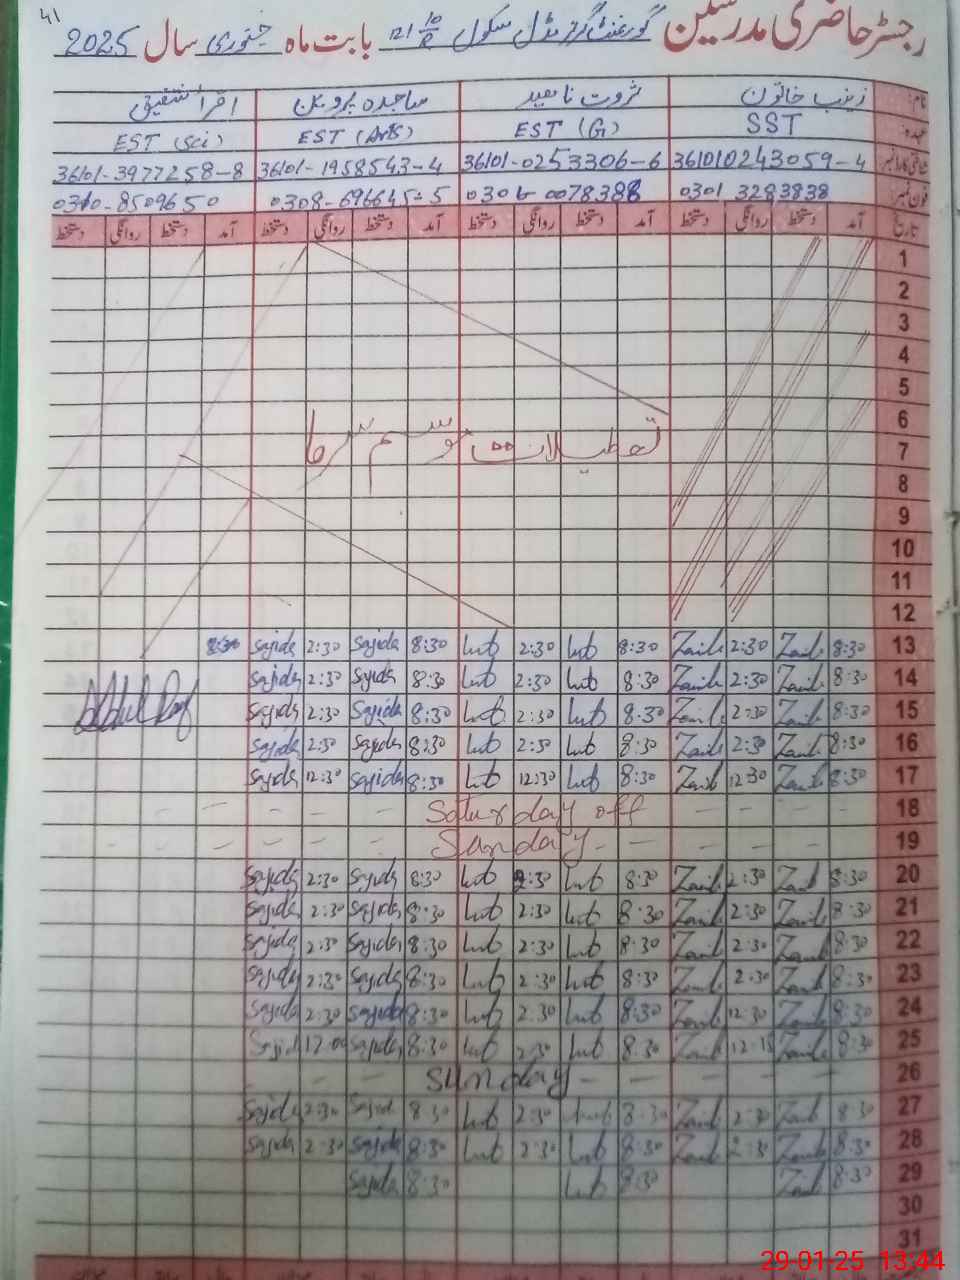 41
رجسٹر حاضری مدرسین گورنمنٹ گرلز مڈل سکول 121/10R بابت ماہ جنوری سال 2025
نام: زینب خاتون ثروت ناہید ساجدہ پروین اقرا شفیق
عہدہ: SST EST (G) EST (Arts) EST (Sci)
361010243059-4 36101-0253306-6 36101-1958543-4 36101-3977258-8
فون نمبر: 0301 3283838 0308-6966455 0310-8509650
تاریخ آمد دستخط روانگی دستخط آمد دستخط روانگی دستخط آمد دستخط روانگی دستخط آمد دستخط روانگی دستخط
1
2
3
4
5
6
تعطیلات موسم سرما
7
8
9
10
11
12
13 8:30 Zainb 2:30 Zainb 8:30 2:30 8:30 Sajida 2:30 Sajida 8:30
14 8:30 Zainb 2:30 Zainb 8:30 2:30 8:30 Sajida 2:30 Sajida
15 8:30 Zainb 2:30 Zainb 8:30 2:30 8:30 Sajida 2:30 Sajida
16 8:30 Zainb 2:30 Zainb 8:30 2:30 8:30 Sajida 2:30 Sajida
17 8:30 Zainb 12:30 Zainb 8:30 12:30 8:30 Sajida 12:30 Sajida
18 Saturday off
19 Sunday
20 8:30 Zainb 2:30 Zainb 8:30 2:30 8:30 Sajida 2:30 Sajida
21 8:30 Zainb 2:30 Zainb 8:30 2:30 8:30 Sajida 2:30 Sajida
22 8:30 Zainb 2:30 Zainb 8:30 2:30 8:30 Sajida 2:30 Sajida
23 8:30 Zainb 2:30 Zainb 8:30 2:30 8:30 Sajida 2:30 Sajida
24 8:30 Zainb 12:30 Zainb 8:30 2:30 8:30 Sajida 2:30 Sajida
25 8:30 Zainb 12:15 Zainb 8:30 2:30 8:30 Sajida 12:00 Sajida
26 Sunday
27 8:30 Zainb 2:30 Zainb 8:30 2:30 8:30 Sajida 2:30 Sajida
28 8:30 Zainb 2:30 Zainb 8:30 2:30 8:30 Sajida 2:30 Sajida
29 8:30 Zainb 8:30 8:30 Sajida
30
31
29-01-25 13:44